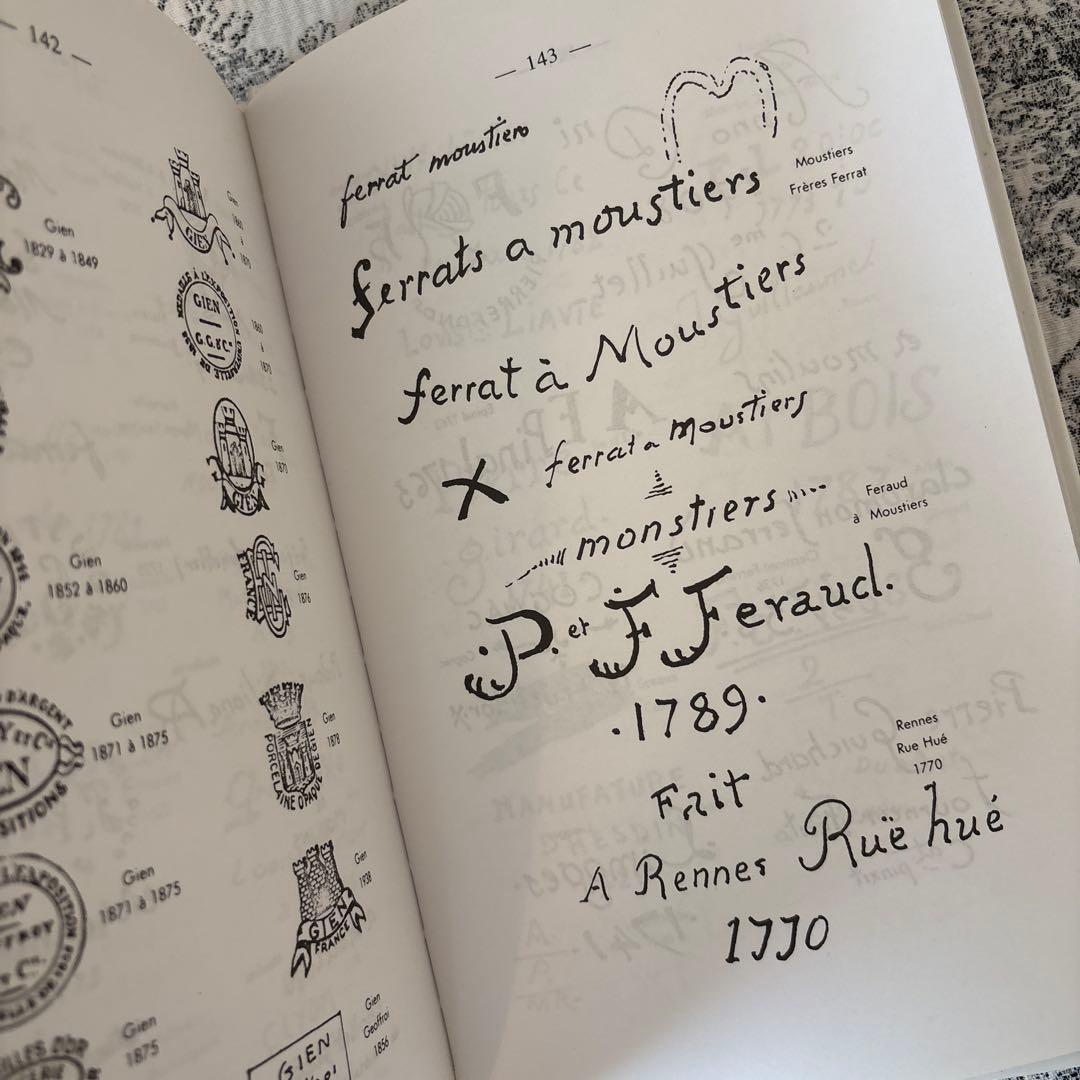 — 142 —
Gien
1829 à 1849
GIEN
Gien
1860
à
1870
MEDAILLE À L'EXPOSITION UNIVERSELLE DE
GIEN
G.G.&Cie
1860
à
1870
GIEN
Gien
1870
Gien
1852 à 1860
FRANCE
Gien
1876
D'ARGENT
Gien
1871 à 1875
PORCELAINE OPAQUE
DE GIEN
Gien
1878
Gien
1871 à 1875
GIEN
FRANCE
Gien
1938
Gien
1875
GIEN
Gien
Geoffroi
1856
— 143 —
ferrat moustiers
Moustiers
Frères Ferrat
ferrats a moustiers
ferrat à Moustiers
X ferrat a Moustiers
monstiers
Feraud
à Moustiers
P. et F Feraud.
·1789·
Rennes
Rue Hué
1770
Fait
A Rennes Ruë hué
1770